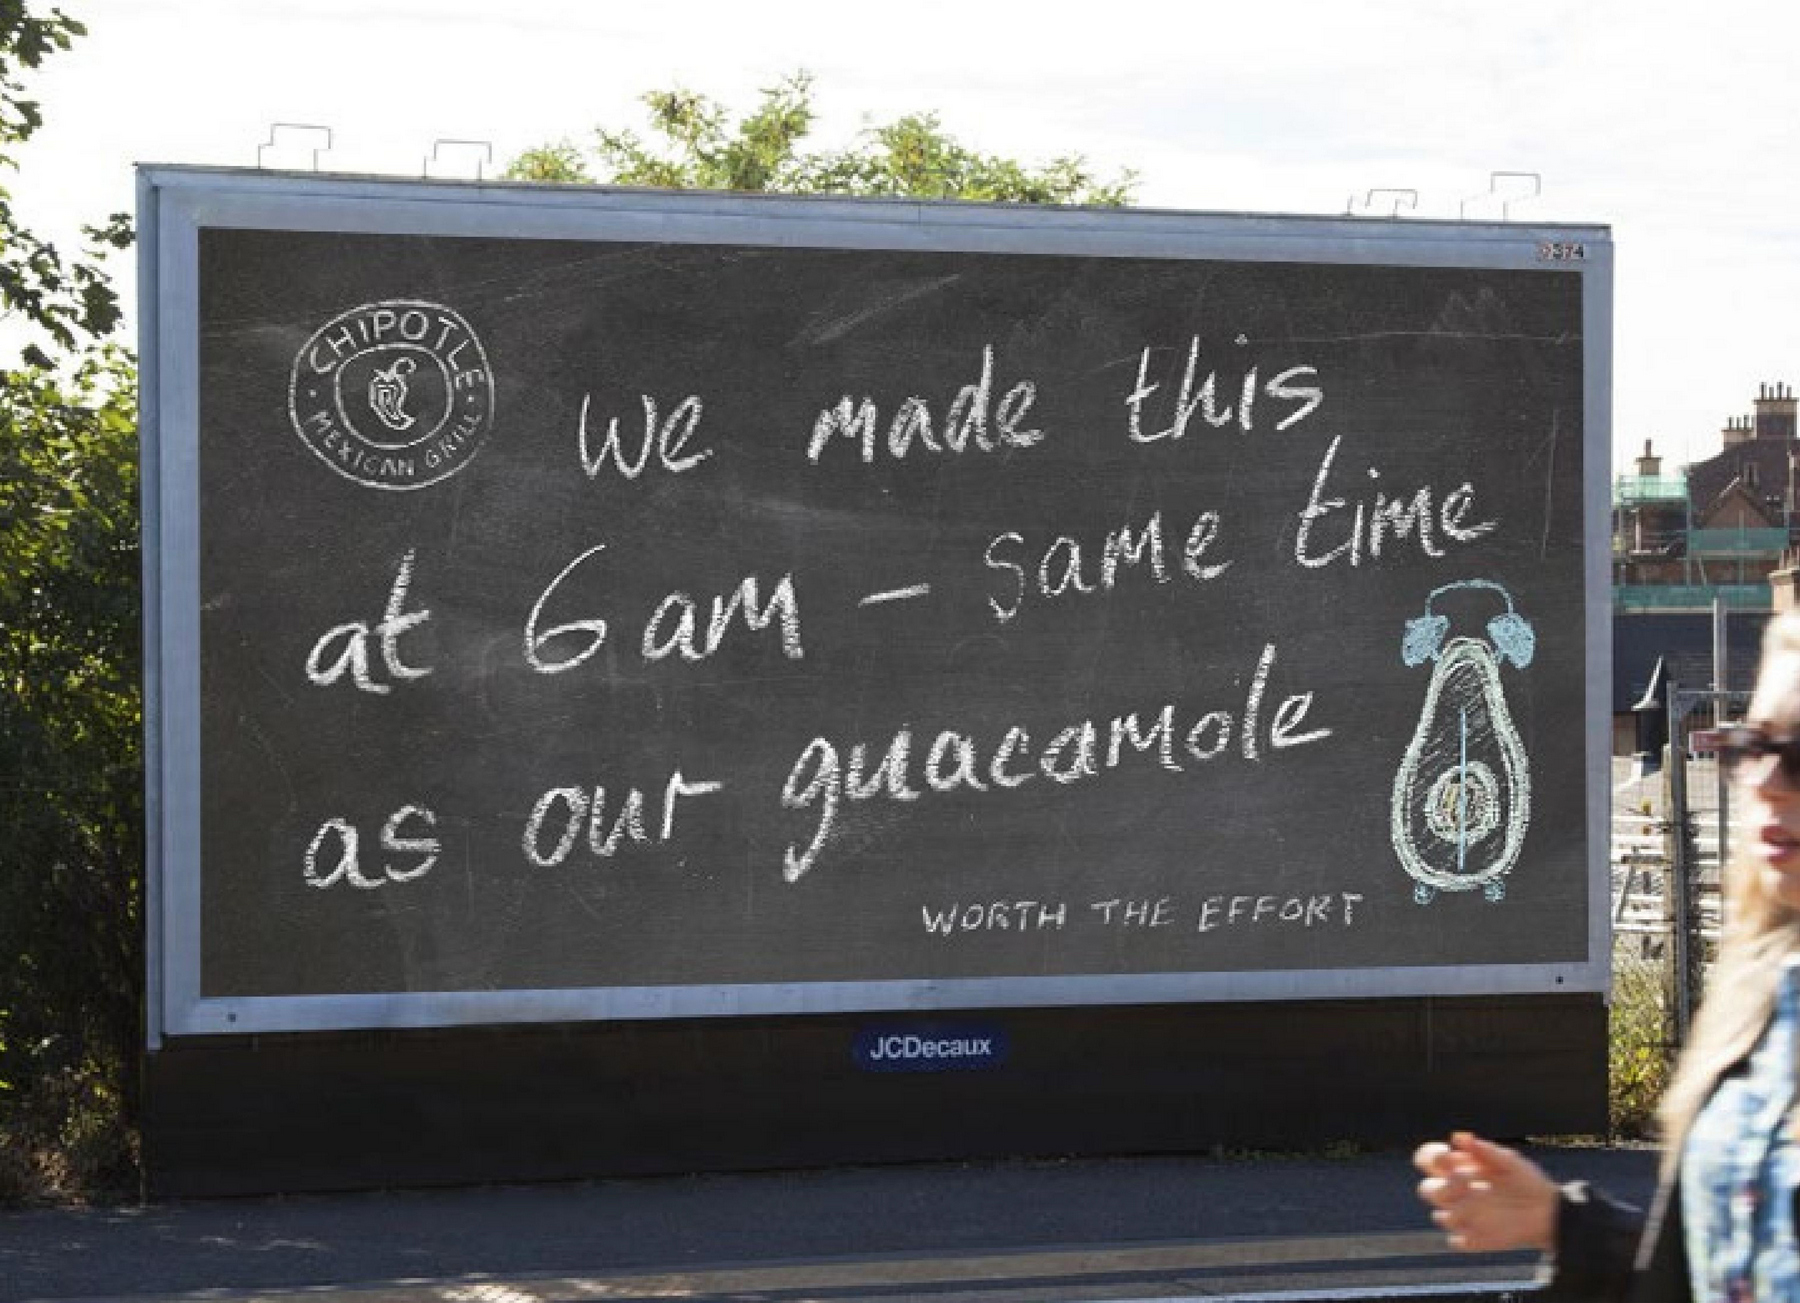 CHIPOTLE
MEXICAN GRILL
We made this
at 6am - same time
as our guacamole
WORTH THE EFFORT
JCDecaux